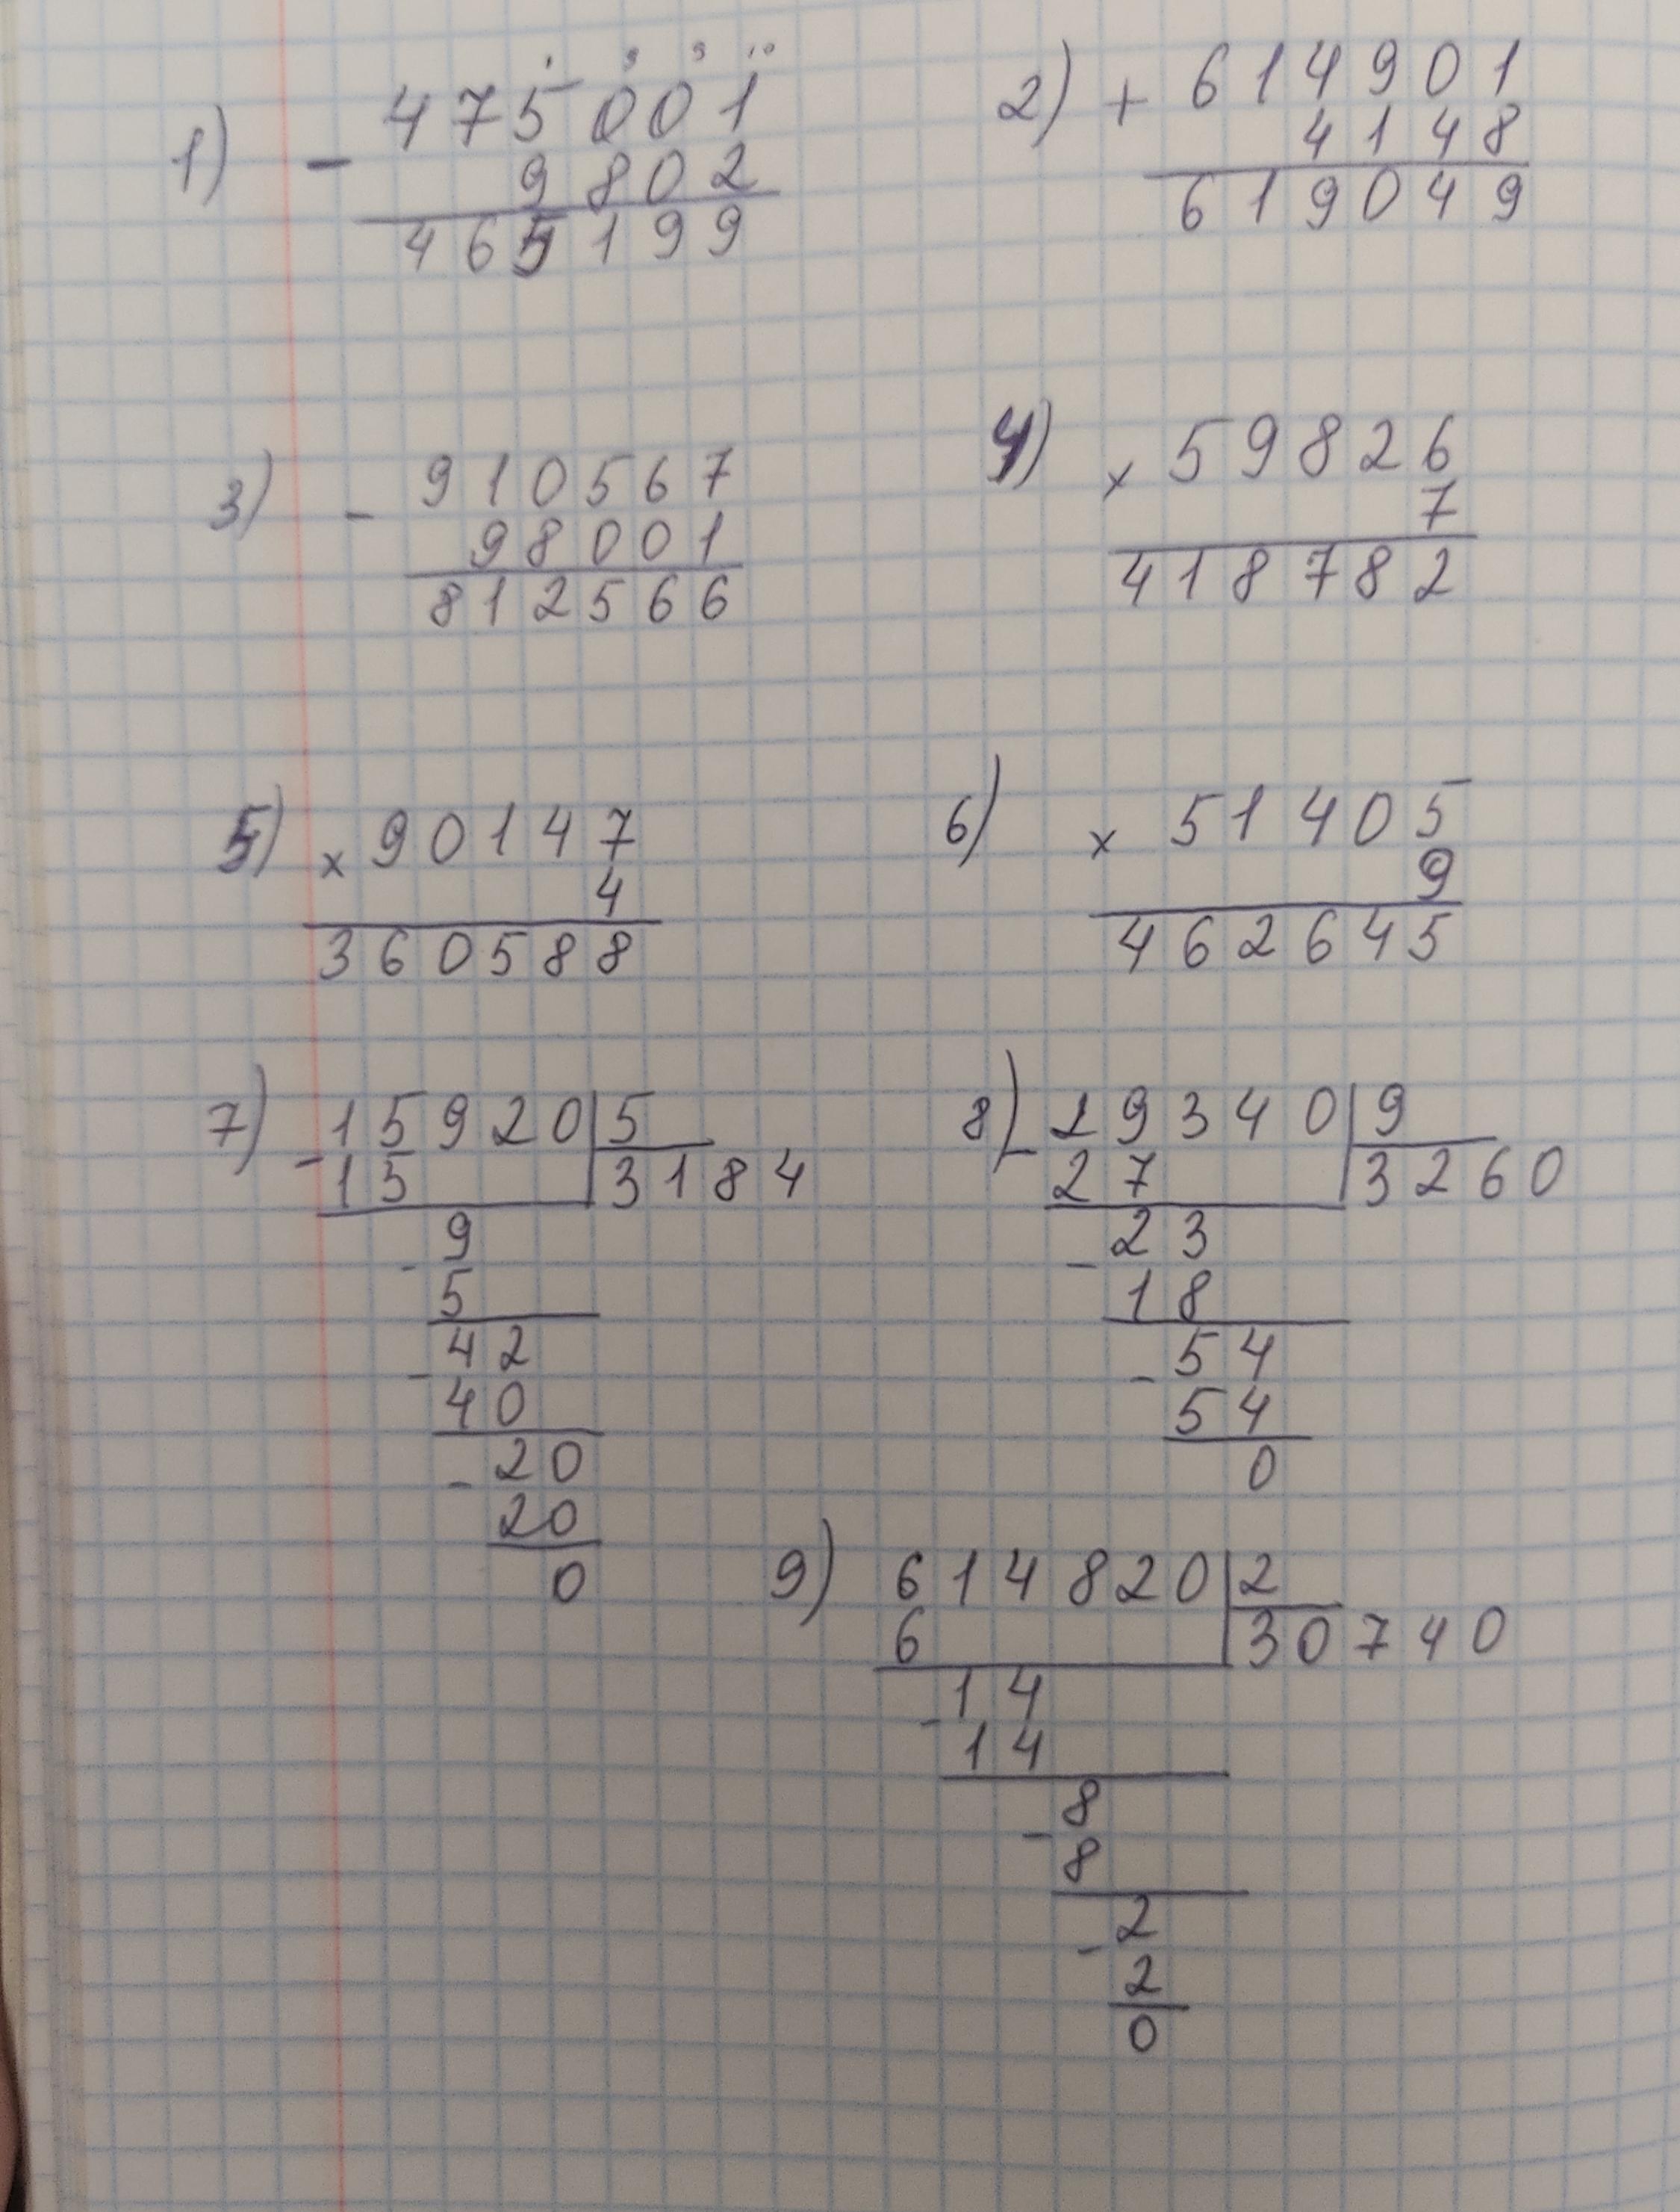 1) - 475001
9802
465199
2) + 614901
4148
619049
3) - 910567
98001
812566
4) × 59826
7
418782
5) × 90147
4
360588
6) × 51405
9
462645
7) - 15920 | 5
15 | 3184
- 9
5
- 42
40
- 20
20
0
8) - 29340 | 9
27 | 3260
- 23
18
- 54
54
0
9) 614820 | 2
6 | 30740
- 14
14
- 8
8
- 2
2
0